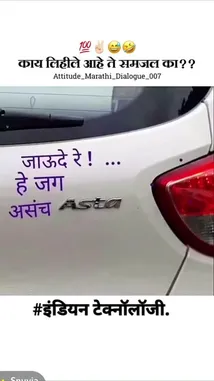 💯✌🏻😅🤣
काय लिहीले आहे ते समजल का??
Attitude_Marathi_Dialogue_007
जाऊदे रे! ...
हे जग
असंच Asta
#इंडियन टेक्नॉलॉजी.